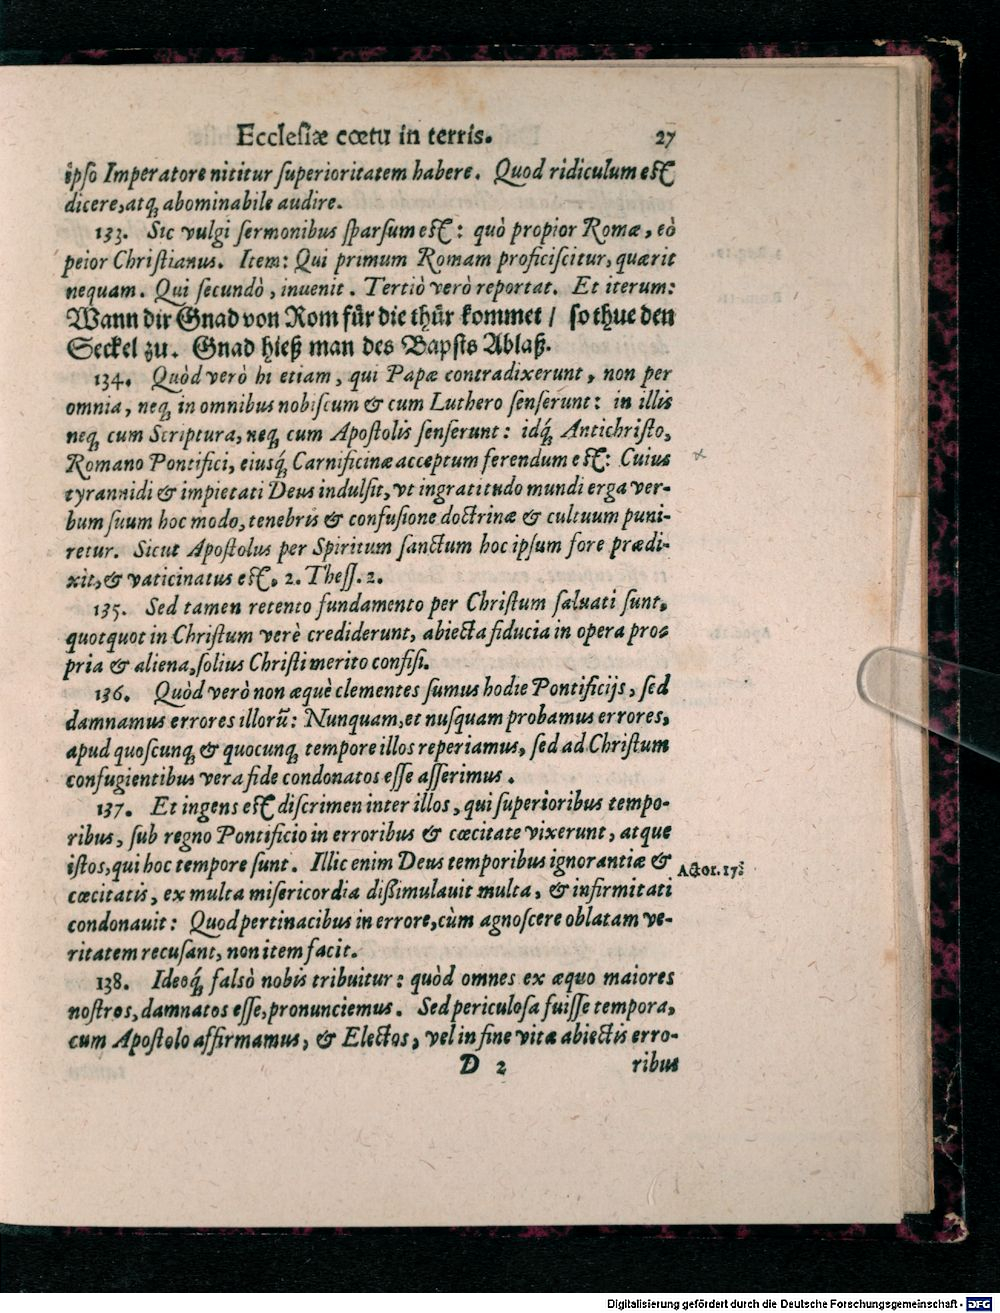 Ecclesiæ cœtu in terris. 27
ipso Imperatore nititur ſuperioritatem habere. Quod ridiculum eſt
dicere, atq́ abominabile audire.
133. Sic vulgi ſermonibus ſparſum eſt: quò propior Romæ, eò
peior Chriſtianus. Item: Qui primum Romam proficiſcitur, quærit
nequam. Qui ſecundò, inuenit. Tertiò verò reportat. Et iterum:
Wann dir Gnad von Rom für die thür kommet / ſo thue den
Seckel zu. Gnad hieß man des Bapſts Ablaß.
134. Quòd verò hi etiam, qui Papæ contradixerunt, non per
omnia, neq́ in omnibus nobiſcum & cum Luthero ſenſerunt: in illis
neq́ cum Scriptura, neq́ cum Apoſtolis ſenſerunt: idq́ Antichriſto,
Romano Pontifici, eiusq́ Carnificinæ acceptum ferendum eſt: Cuius
tyrannidi & impietati Deus indulſit, vt ingratitudo mundi erga ver-
bum ſuum hoc modo, tenebris & confuſione doctrinæ & cultuum puni-
retur. Sicut Apoſtolus per Spiritum ſanctum hoc ipſum fore prædi-
xit, & vaticinatus eſt, 2. Theſſ. 2.
135. Sed tamen retento fundamento per Chriſtum ſaluati ſunt,
quotquot in Chriſtum verè crediderunt, abiecta fiducia in opera pro-
pria & aliena, ſolius Chriſti merito confiſi.
136. Quòd verò non æquè clementes ſumus hodie Pontificijs, ſed
damnamus errores illorũ: Nunquam, et nuſquam probamus errores,
apud quoſcunq́ & quocunq́ tempore illos reperiamus, ſed ad Chriſtum
confugientibus vera fide condonatos eſſe aſſerimus.
137. Et ingens eſt diſcrimen inter illos, qui ſuperioribus tempo-
ribus, ſub regno Pontificio in erroribus & cœcitate vixerunt, atque
iſtos, qui hoc tempore ſunt. Illic enim Deus temporibus ignorantiæ &
Actor. 17.
cœcitatis, ex multa miſericordia dißimulauit multa, & infirmitati
condonauit: Quod pertinacibus in errore, cùm agnoſcere oblatam ve-
ritatem recuſant, non item facit.
138. Ideoq́ falsò nobis tribuitur: quòd omnes ex æquo maiores
noſtros, damnatos eſſe, pronunciemus. Sed periculoſa fuiſſe tempora,
cum Apoſtolo affirmamus, & Electos, vel in fine vitæ abiectis erro-
D 2 ribus
Digitalisierung gefördert durch die Deutsche Forschungsgemeinschaft - DFG